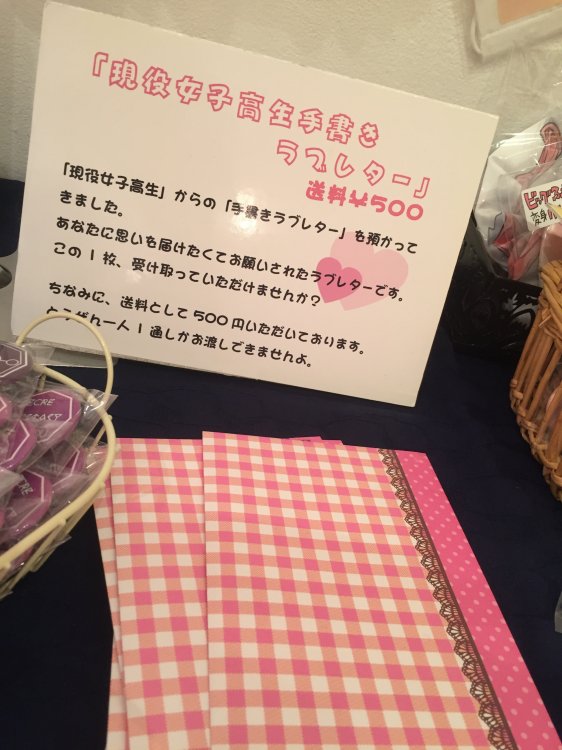 「現役女子高生手書き
ラブレター」
送料￥500
「現役女子高生」からの「手書きラブレター」を預かって
きました。
あなたに思いを届けたくてお願いされたラブレターです。
この1枚、受け取っていただけませんか？
ちなみに、送料として500円いただいております。
とうぜん一人1通しかお渡しできませんよ。
変身